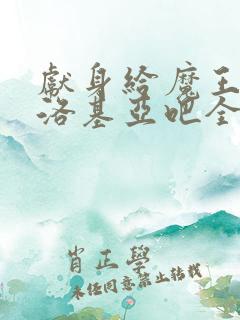 獻身給魔王
洛基亞吧全
肖正學
未经同意禁止转载